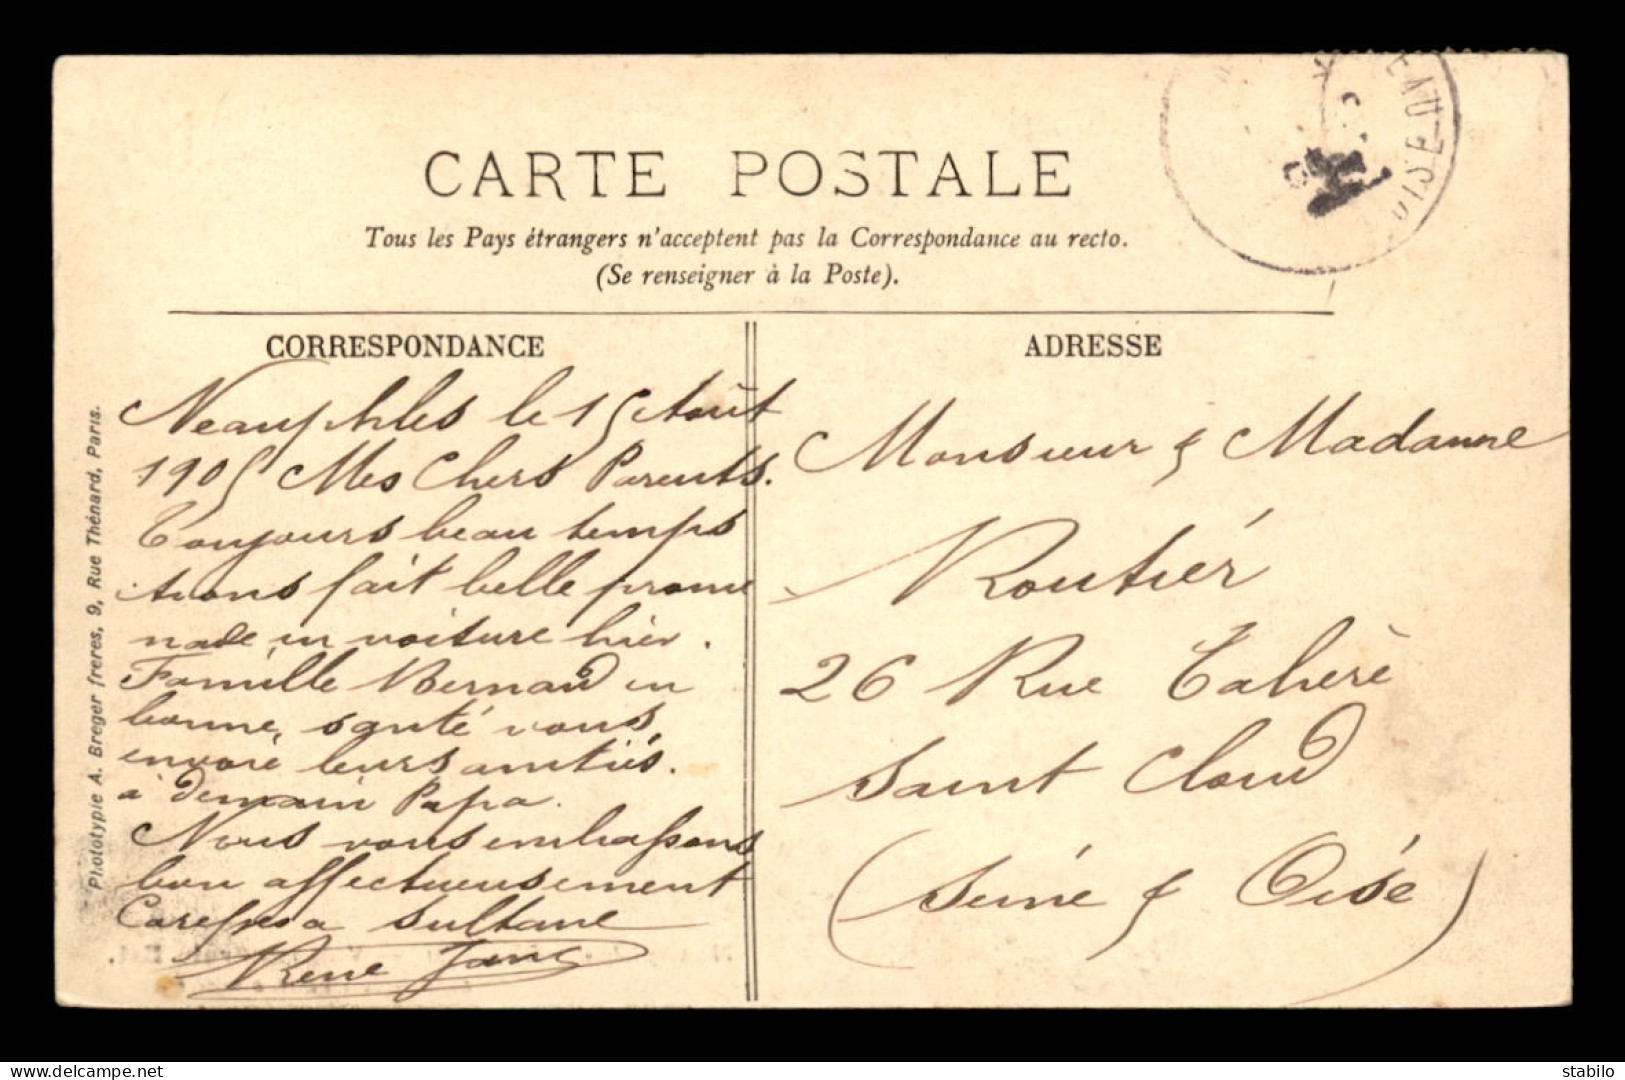 CARTE POSTALE
Tous les Pays étrangers n'acceptent pas la Correspondance au recto.
(Se renseigner à la Poste).
CORRESPONDANCE
Neauphles le 15 Août
1905 Mes Chers Parents.
Toujours beau temps
avons fait belle prome
nade en voiture hier.
Famille Bernard en
bonne santé vous
envoie leurs amitiés.
à demain Papa.
Nous vous embrassons
bien affectueusement
Caresses a Sultane
René Jane
ADRESSE
Monsieur & Madame
Routier
26 Rue Tahère
Saint Cloud
(Seine & Oise)
Phototypie A. Breger frères, 9, Rue Thénard, Paris.
OISE
delcampe.net
stabilo